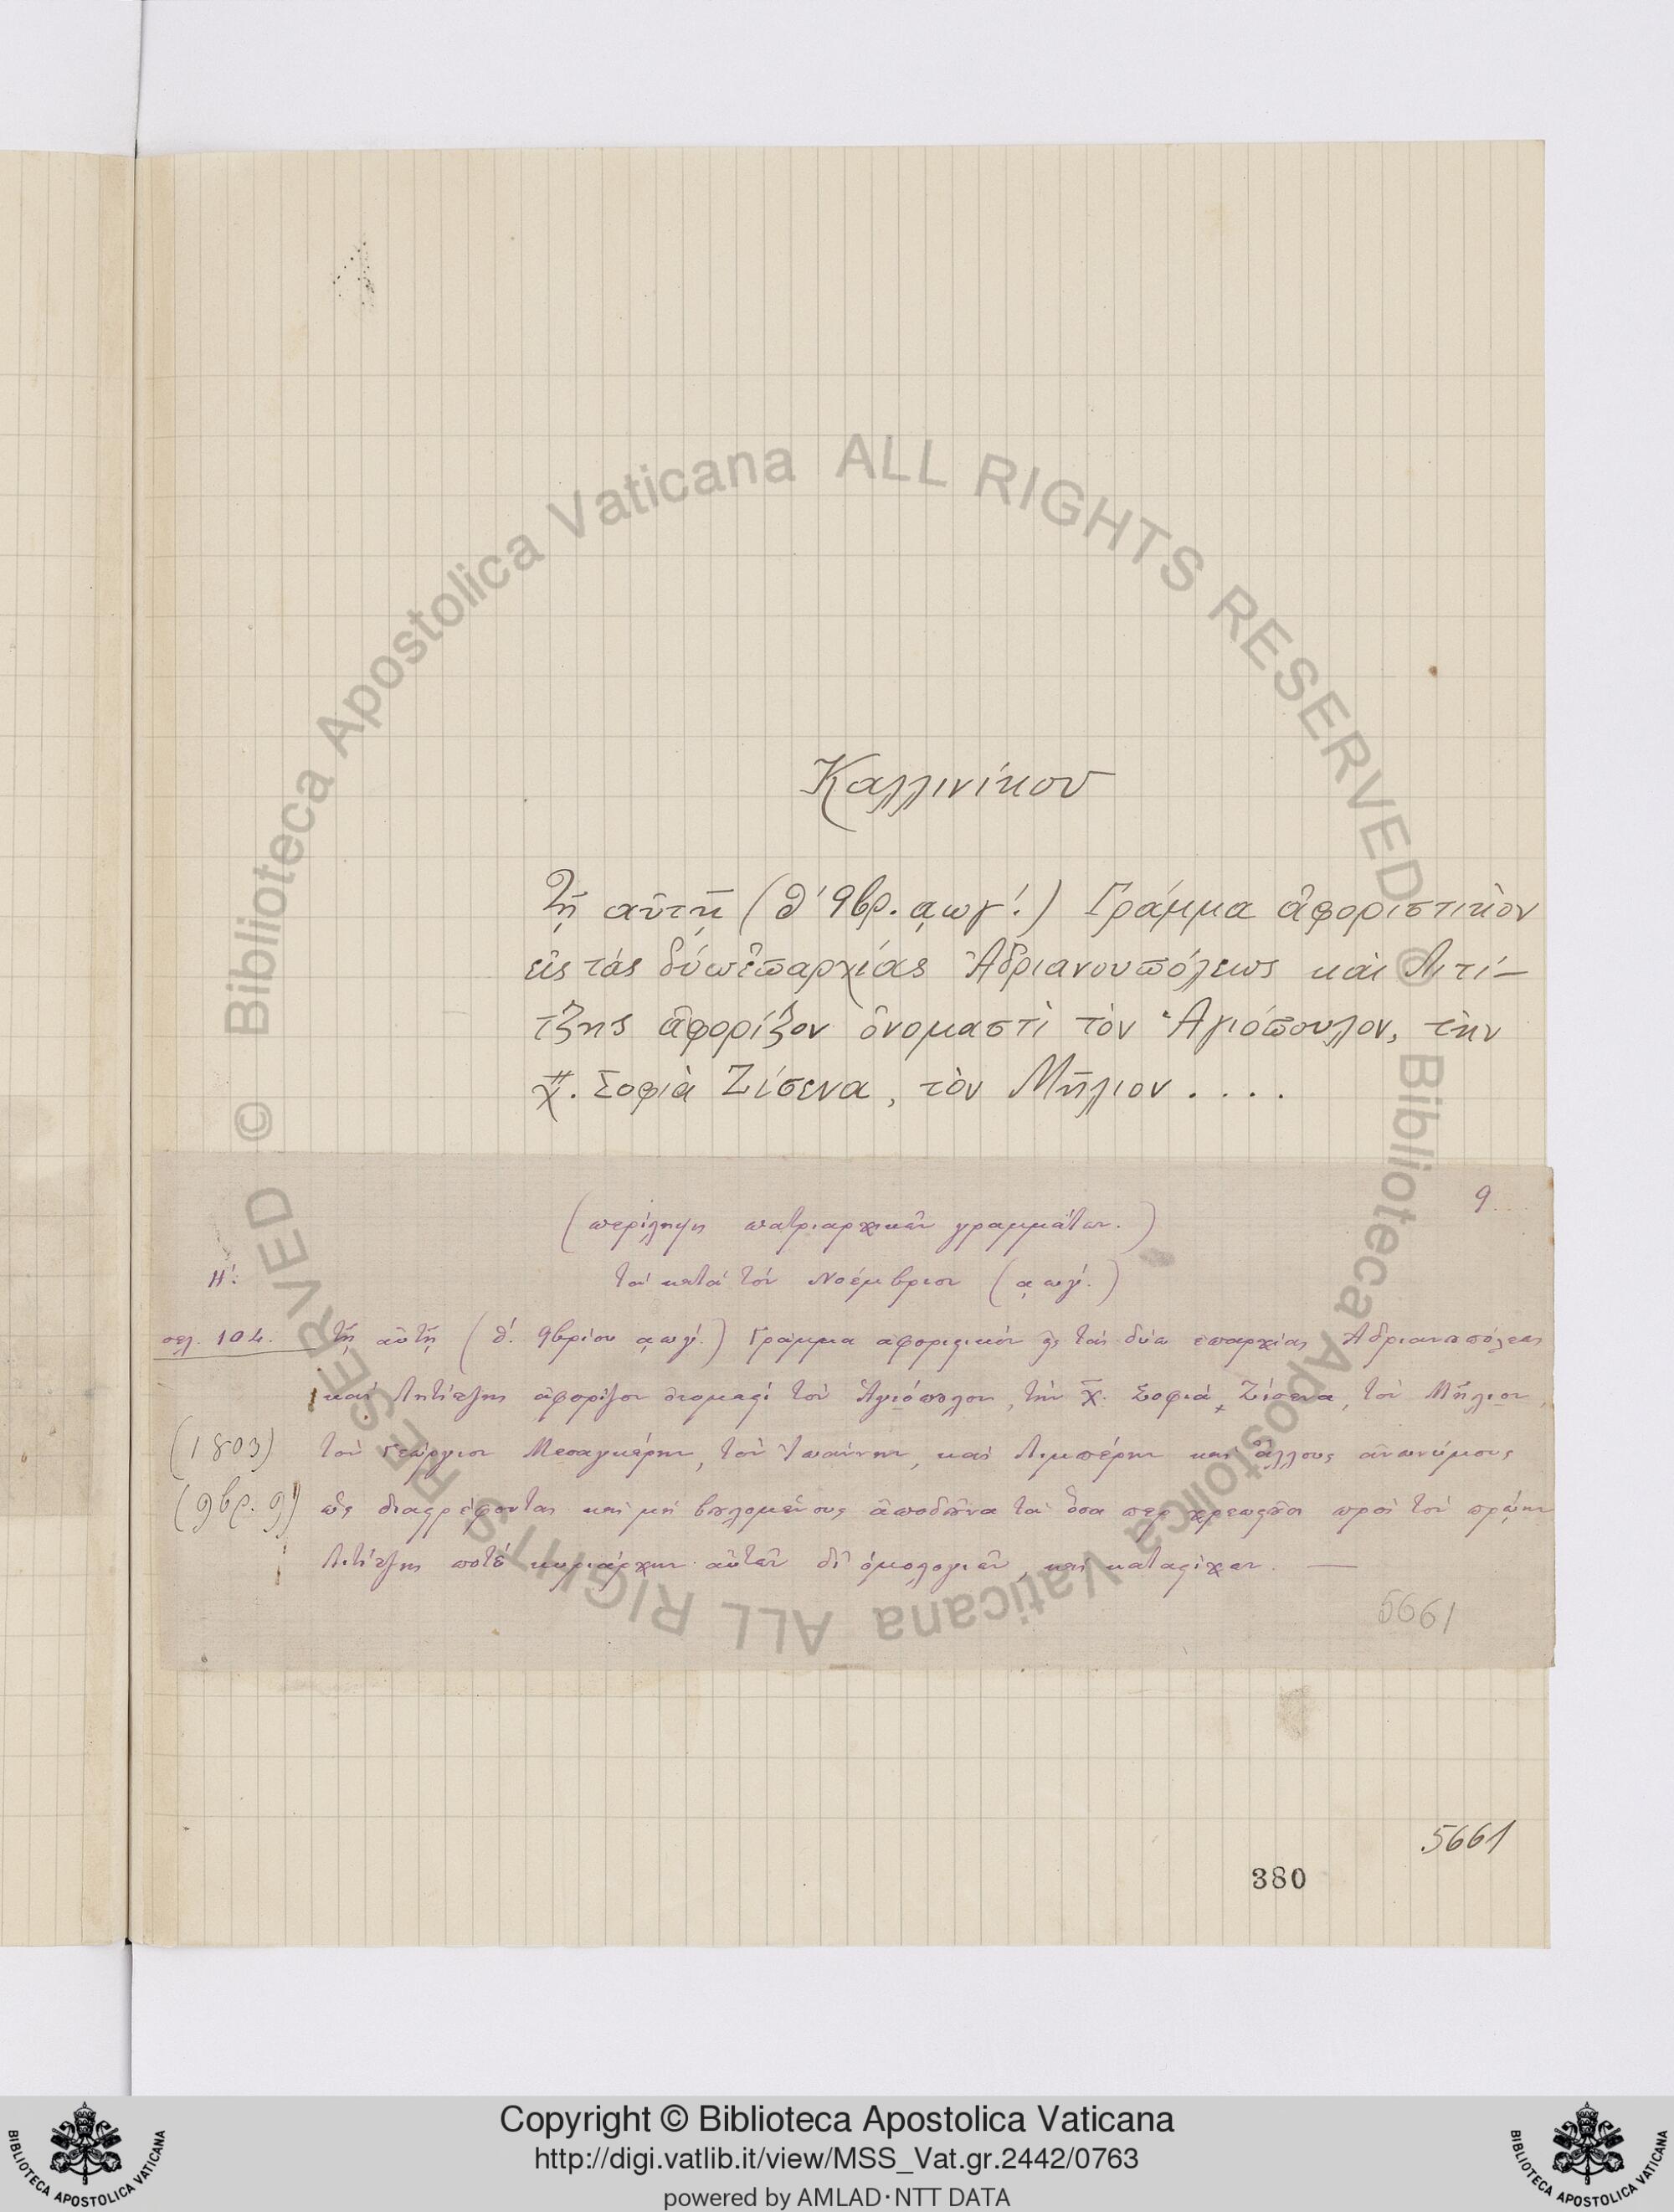 Καλλινίκου
Τῇ αὐτῇ (θ΄ 9βρ. ͵αωγ΄.) Γράμμα ἀφοριστικὸν
εἰς τὰς δύω ἐπαρχίας Ἀδριανουπόλεως καὶ Λιτί-
τζης ἀφορίζον ὀνομαστὶ τὸν Ἁγιόπουλον, τὴν
χ. Σοφιὰ Ζίσενα, τὸν Μῆλιον....
9
(περίληψις πατριαρχικῶν γραμμάτων.)
Η΄. τὰ κατὰ τὸν Νοέμβριον (͵αωγ΄.)
σελ. 104. τῇ αὐτῇ (θ΄. 9βρίου ͵αωγ΄.) Γράμμα ἀφοριστικὸν εἰς τὰς δύω ἐπαρχίας Ἀδριανουπόλεως
καὶ Λητίτζης ἀφορίζον ὀνομαστὶ τὸν Ἁγιόπουλον, τὴν χ. Σοφιὰ Ζίσενα, τὸν Μῆλιον,
(1803) τὸν Γεώργιον, τὸν Ἰωάννην, καὶ καὶ ἄλλους ἀνωνύμους
(9βρ. 9) ὡς διαστρέφοντας καὶ μὴ βουλομένους ἀποδοῦναι τὰ ὅσα περ χρεωστοῦσι πρὸς τὸν πρώην
Λιτίτζης ποτὲ κυριάρχην αὐτῶν δι᾽ ὁμολογιῶν, καὶ καταστίχων. —
5661
5661
380
© Biblioteca Apostolica Vaticana ALL RIGHTS RESERVED © Biblioteca Apostolica Vaticana ALL RIGHTS RESERVED
Copyright © Biblioteca Apostolica Vaticana
http://digi.vatlib.it/view/MSS_Vat.gr.2442/0763
powered by AMLAD·NTT DATA
BIBLIOTECA APOSTOLICA VATICANA
BIBLIOTECA APOSTOLICA VATICANA